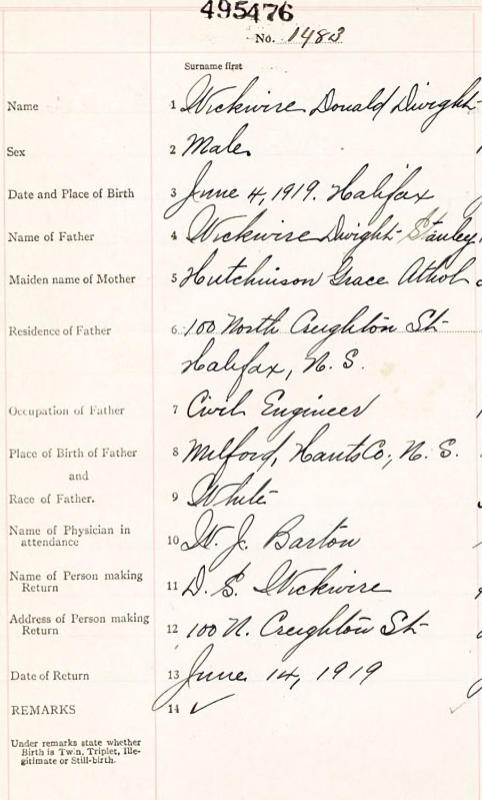 495476
No. 1483
Surname first
Name 1 Wickwire Donald Dwight
Sex 2 Male
Date and Place of Birth 3 June 4, 1919. Halifax
Name of Father 4 Wickwire Dwight Stanley
Maiden name of Mother 5 Hutchinson Grace Athol
Residence of Father 6 100 North Creighton St
Halifax, N. S.
Occupation of Father 7 Civil Engineer
Place of Birth of Father 8 Milford, Hants Co., N. S.
and
Race of Father. 9 White
Name of Physician in
attendance 10 W. J. Barton
Name of Person making
Return 11 D. S. Wickwire
Address of Person making
Return 12 100 N. Creighton St
Date of Return 13 June 14, 1919
REMARKS 14 ✓
Under remarks state whether
Birth is Twin, Triplet, Ille-
gitimate or Still-birth.